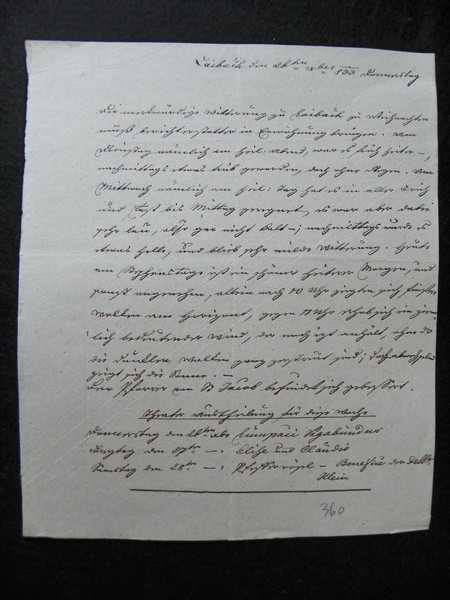 Laibach den 26ten xber 833 Donnerstag
Die merkwürdige Witterung zu Laibach zu Weihnachten
muß Berichterstatter in Erwähnung bringen. Am
Dienstag nämlich am heil. Abend, war es früh heiter,
nachmittags etwas trüb geworden, doch ohne Regen. Am
Mittwoch nämlich am heil. Tag hat es in aller Früh
und fast bis Mittag geregnet, es war aber dabei
sehr lau, also gar nicht kalt; nachmittags wurde es
etwas helle, und blieb sehr milde Witterung. Heute
am Stephanstage ist ein schöner heiterer Morgen, und
sonst angenehm, allein nach 10 Uhr zeigten sich finstere
Wolken am Horizont, gegen 11 Uhr erhob sich ein ziem-
lich bedeutender Wind, der noch itzt anhält, ohne daß
die dunklen Wolken ganz zerstreut sind;
zeigt sich die Sonne. —
Der Pfarrer von St Jacob befindet sich gebessert.
Theater Austheilung für diese Woche
Donnerstag den 26ten xbr Lumpaci Vagabundus
Freytag den 27ten —: Elise und Claudio
Samstag den 28ten —: Pfefferrösel — Benefice der Dlle
Klein
360